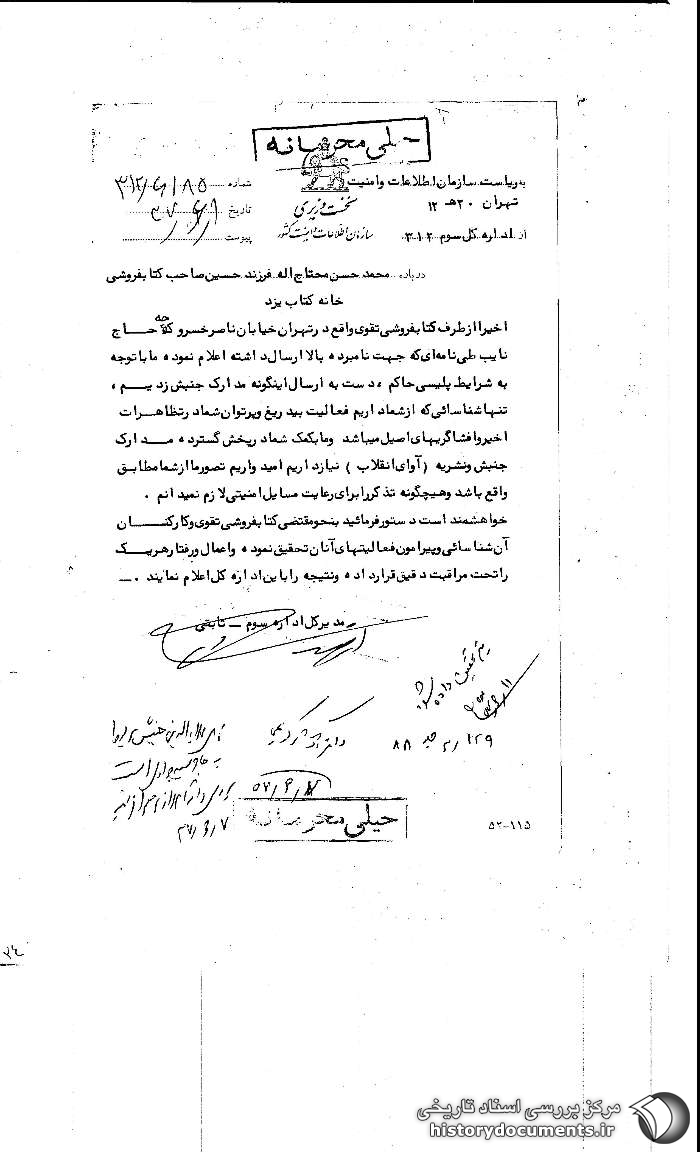 خیلی محرمانه
به ریاست سازمان اطلاعات و امنیت
تهران ۲۰ هـ ۱۲
از اداره کل سوم ۳۱۲
نخست وزیری
سازمان اطلاعات و امنیت کشور
شماره ۳۱۲/۶۱۸۵
تاریخ
پیوست
درباره محمد حسن محتاج اله فرزند حسین صاحب کتابفروشی
خانه کتاب یزد
اخیرا از طرف کتابفروشی تقوی واقع در تهران خیابان ناصر خسرو کوچه حاج
نایب طی نامه‌ای که جهت نامبرده بالا ارسال داشته اعلام نموده ما با توجه
به شرایط پلیسی حاکم، دست به ارسال اینگونه مدارک جنبش زدیم،
تنها شناسائی که از شما داریم فعالیت بیدریغ و پرتوان شما در تظاهرات
اخیر و افشاگریهای اصیل میباشد و ما بکمک شما در پخش گسترده مدارک
جنبش و نشریه (آوای انقلاب) نیاز داریم امید واریم تصور ما از شما مطابق
واقع باشد و هیچگونه تذکر را برای رعایت مسایل امنیتی لازم نمیدانم.
خواهشمند است دستور فرمائید بنحو مقتضی کتابفروشی تقوی و کارکنان
آن شناسائی و پیرامون فعالیتهای آنان تحقیق نموده و اعمال و رفتار هریک
را تحت مراقبت دقیق قرارداده و نتیجه را باین اداره کل اعلام نمایند.
مدیر کل اداره سوم ـ ثابتی
۵۷/۶/۷
خیلی محرمانه
۵۲-۱۱۵
مرکز بررسی اسناد تاریخی
historydocuments.ir